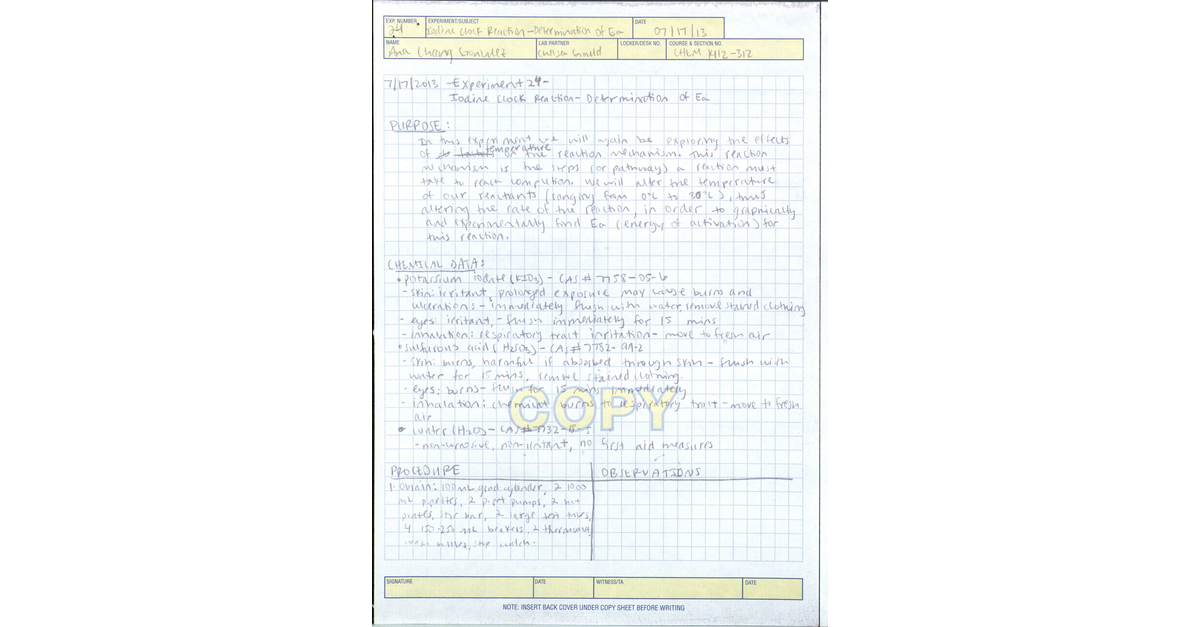 EXP. NUMBER EXPERIMENT/SUBJECT DATE
24 Iodine Clock Reaction-Determination of Ea 07/17/13
NAME LAB PARTNER LOCKER/DESK NO. COURSE & SECTION NO.
Ana Chang Gonzalez Chelsea Gould CHEM 1412-312
7/17/2013 -Experiment 24-
Iodine Clock Reaction- Determination of Ea
PURPOSE:
In this experiment we will again be exploring the effects
of temperature on the reaction mechanism. This reaction
mechanism is the steps (or pathway) a reaction must
take to reach completion. We will alter the temperature
of our reactants (ranging from 0°C to 30°C), thus
altering the rate of the reaction, in order to graphically
and experimentally find Ea (energy of activation) for
this reaction.
CHEMICAL DATA:
• potassium iodate (KIO3) - CAS # 7758-05-6
- skin: irritant, prolonged exposure may cause burns and
ulcerations - immediately flush with water, remove stained clothing
- eyes: irritant, - flush immediately for 15 mins
- inhalation: respiratory tract irritation - move to fresh air
• sulfurous acid (H2SO3) - CAS # 7782-99-2
- skin: burns, harmful if absorbed through skin - flush with
water for 15 mins, remove stained clothing.
- eyes: burns - flush for 15 mins immediately
- inhalation: chemical burns to respiratory tract - move to fresh
air
• water (H2O) - CAS # 7732-
- non-corrosive, non-irritant, no first aid measures
COPY
PROCEDURE OBSERVATIONS
1. Obtain: 100mL grad cylinder, 2 1000
mL pipettes, 2 pipet pumps, 2 hot
plates, stir bar, 2 large test tubes,
4 150-250 mL beakers, 2
stop watch.
SIGNATURE DATE WITNESS/TA DATE
NOTE: INSERT BACK COVER UNDER COPY SHEET BEFORE WRITING